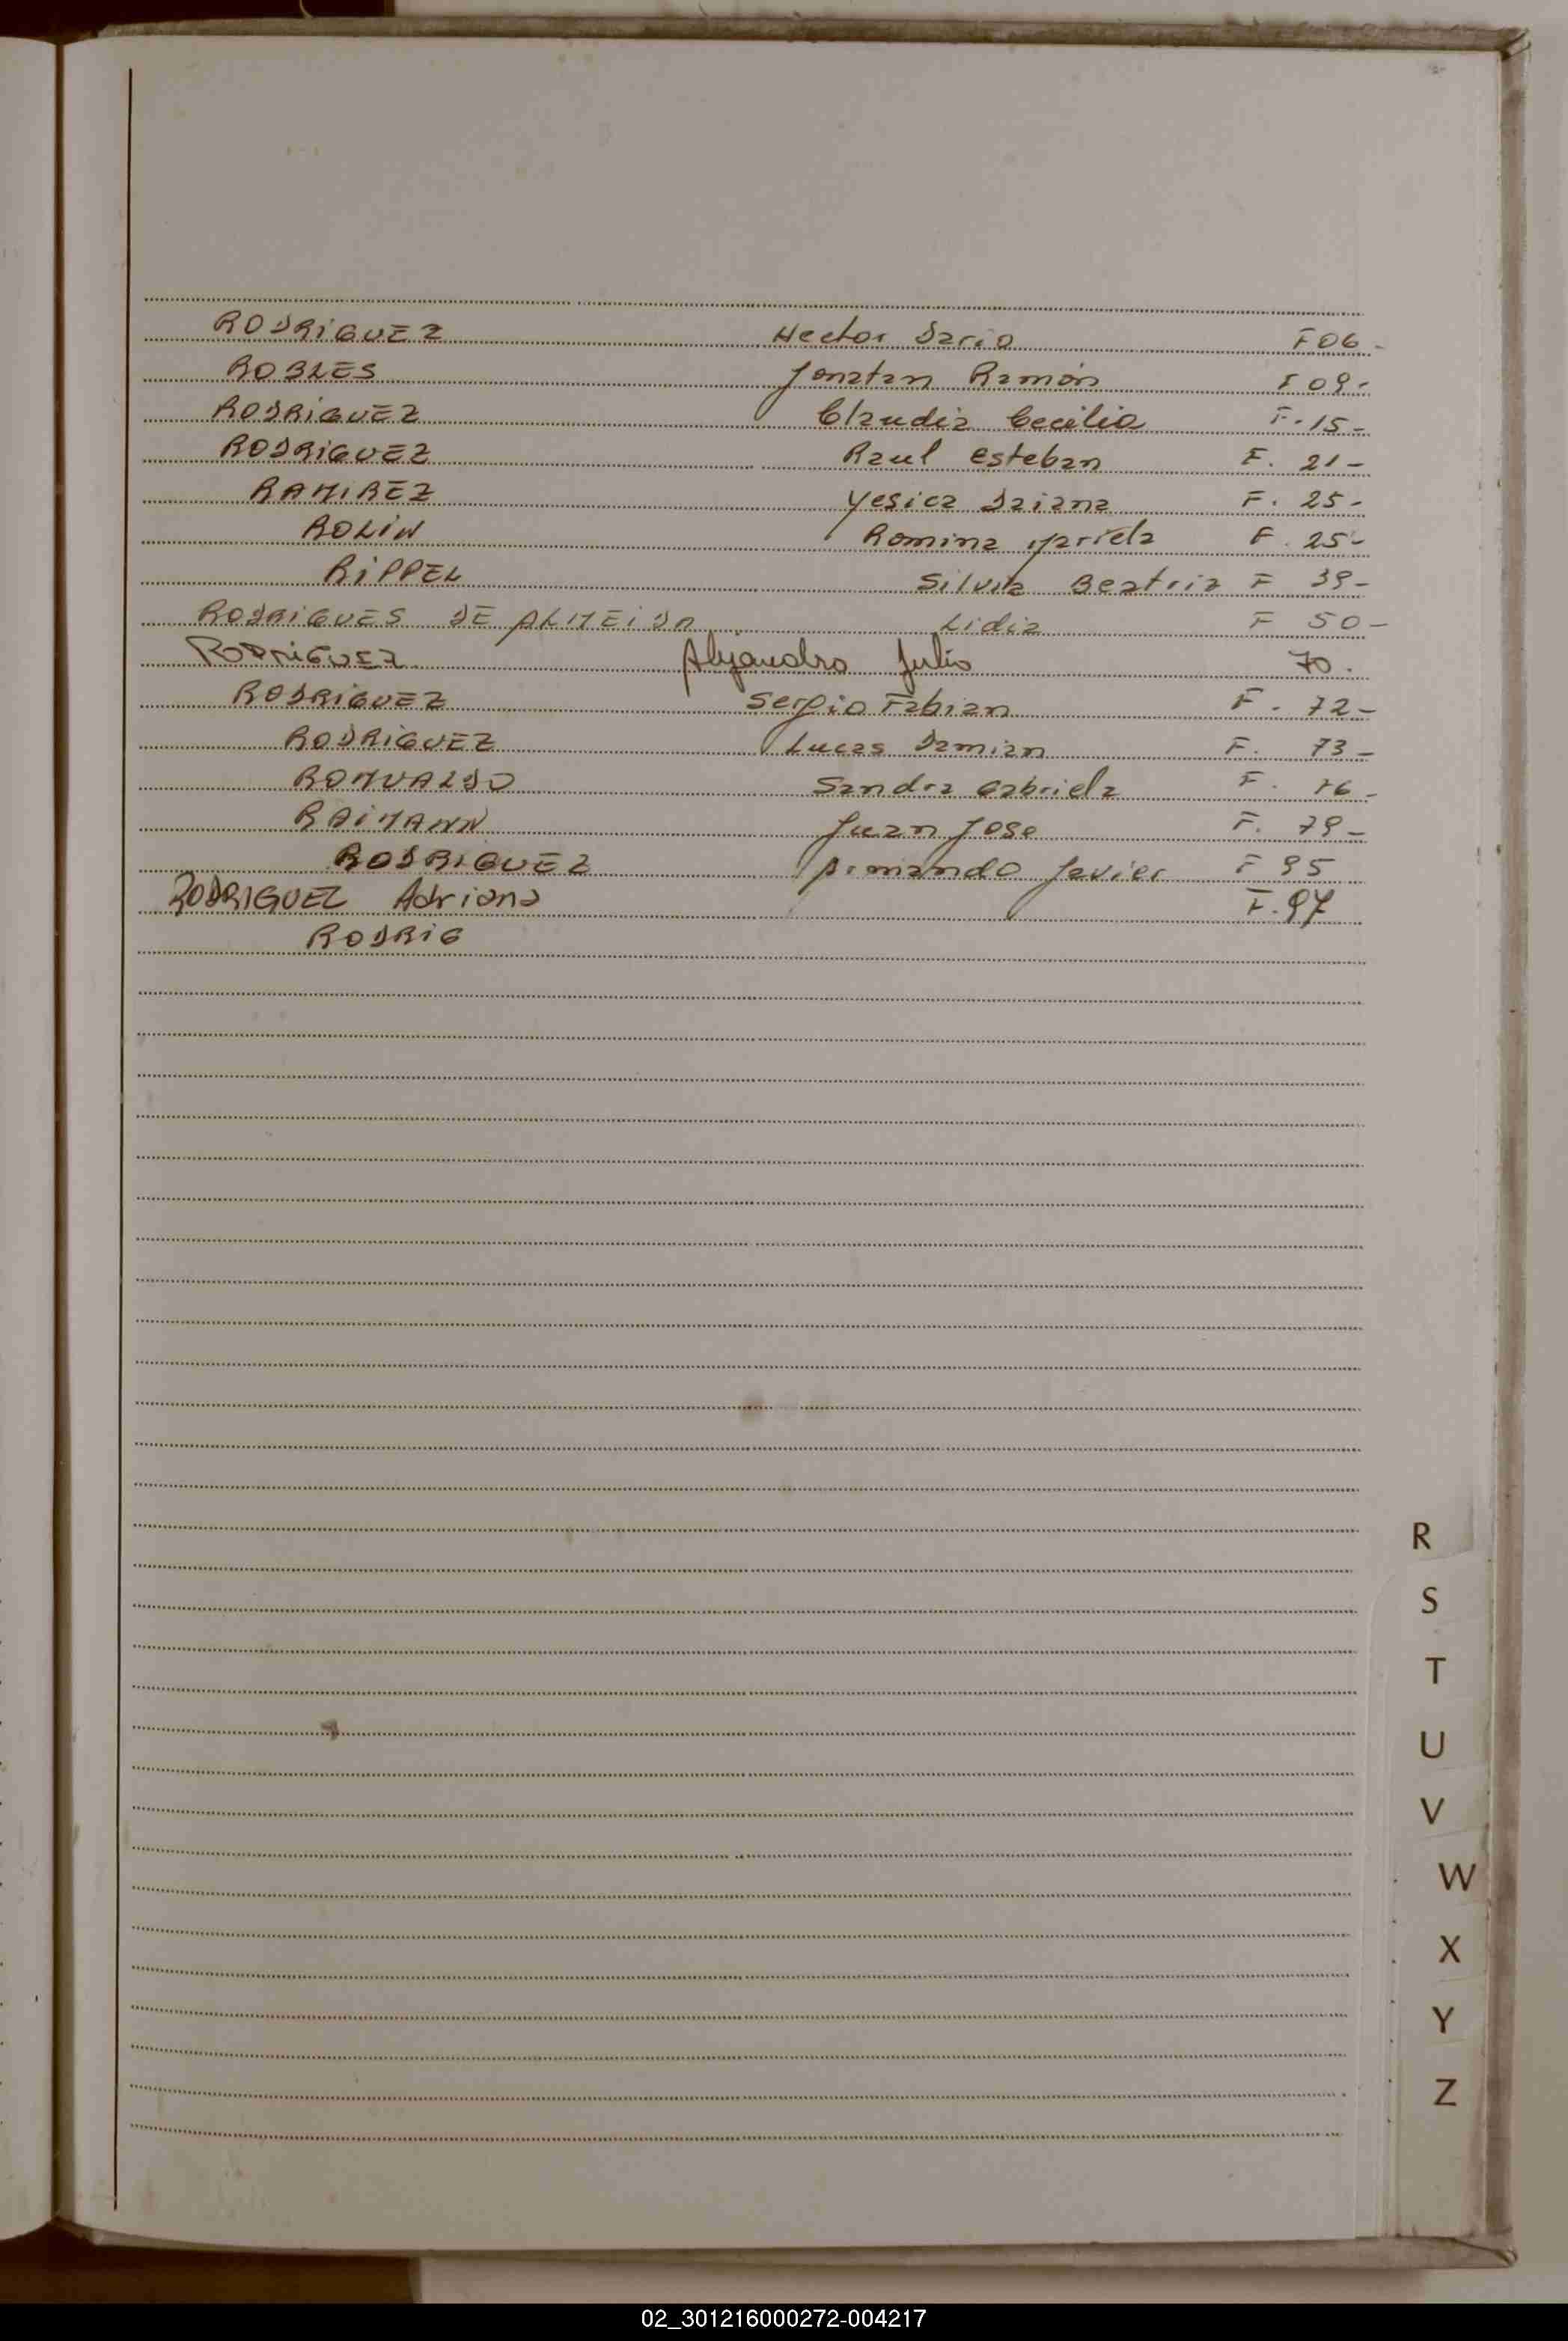 RODRIGUEZ Hector Dario F 06-
ROBLES Jonatan Ramón F 09-
RODRIGUEZ Claudia Cecilia F. 15-
RODRIGUEZ Raul esteban F. 21-
RAMIREZ Yesica Daiana F. 25-
ROLIN Romina Mariela F. 25-
RIPPEL Silvia Beatriz F 39-
RODRIGUES DE ALMEIDA Lidia F 50-
RODRIGUEZ Alejandro Julio 70.
RODRIGUEZ Sergio Fabian F. 72-
RODRIGUEZ Lucas Damian F. 73-
ROMUALDO Sandra Gabriela F. 76-
RAIMANN Juan Jose F. 79-
RODRIGUEZ Armando Javier F 95
RODRIGUEZ Adriana F. 97
RODRIG
R
S
T
U
V
W
X
Y
Z
02_301216000272-004217